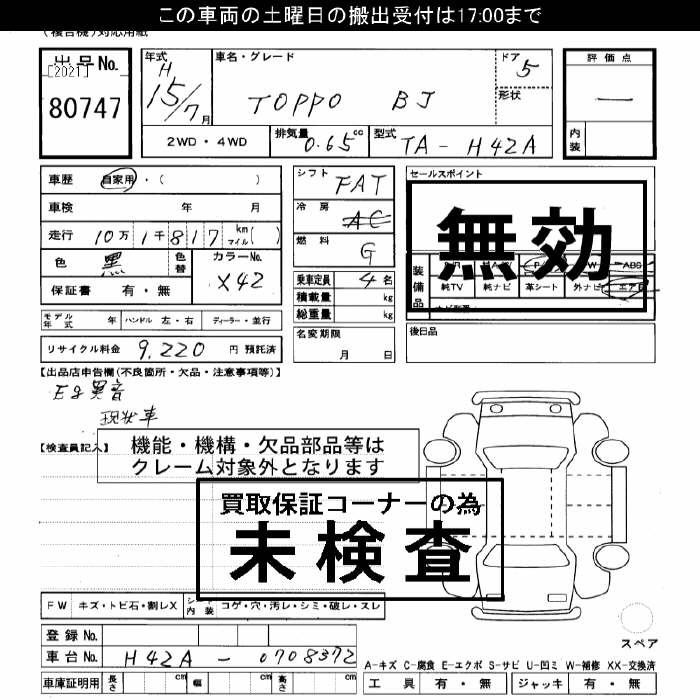 この車両の土曜日の搬出受付は17:00まで
(複合機)対応用紙
出品No.
[2021]
80747
年式
H
15/7 月
車名・グレード
TOPPO BJ
ドア
5
形状
評価点
—
内装
2WD・4WD
排気量
0.65 cc
型式
TA-H42A
車歴 自家用・( )
車検 年 月
走行 10万1千817 km マイル( )
色 黒
色替
カラーNo.
X42
保証書 有・無
シフト
FAT
冷房
AC
燃料
G
乗車定員 4名
積載量 kg
総重量 kg
セールスポイント
無効
装備品
ABS
純TV 純ナビ 革シート 外ナビ エアB
モデル年式 年 ハンドル 左・右 ディーラー・並行
名変期限
月 日
後日品
リサイクル料金 9,220 円 預託済
【出品店申告欄(不良箇所・欠品・注意事項等)】
Eg異音
現状車
【検査員記入】
機能・機構・欠品部品等は
クレーム対象外となります
買取保証コーナーの為
未検査
FW キズ・トビ石・割レX シート内装 コゲ・穴・汚レ・シミ・破レ・スレ
スペア
登録No.
車台No. H42A-0708372
A-キズ C-腐食 E-エクボ S-サビ U-凹ミ W-補修 XX-交換済
車庫証明用 長さ cm 幅 cm 高さ cm
工具 有・無 ジャッキ 有・無